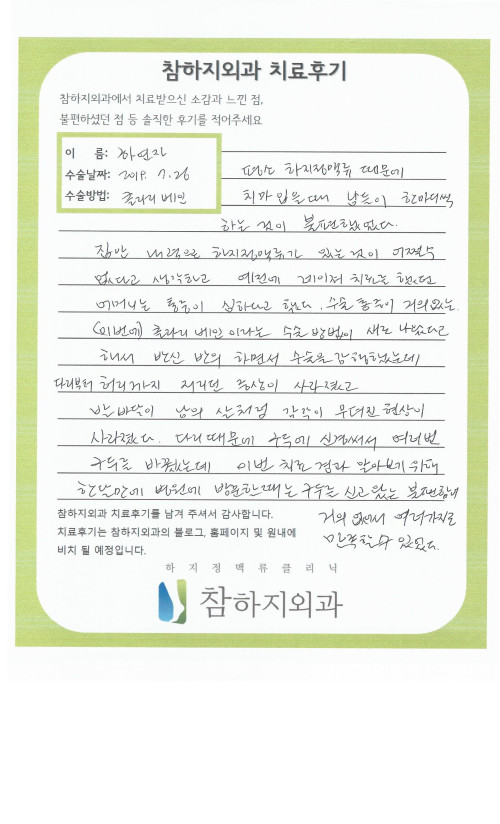 참하지외과 치료후기
참하지외과에서 치료받으신 소감과 느낀 점,
불편하셨던 점 등 솔직한 후기를 적어주세요
이 름: 하연자
수술날짜: 2019. 7. 26
수술방법: 클라리 베인
평소 하지정맥류 때문에
치마 입을때 남들이 한마디씩
하는 것이 불편했었다.
집안 내력으로 하지정맥류가 있는 것이 어쩔수
없다고 생각하고 예전에 레이저 치료를 했었던
어머니는 통증이 심하다고 했다. 수술 통증이 거의없는
(이번에) 클라리 베인 이라는 수술 방법이 새로 나왔다고
해서 반신 반의 하면서 수술을 감행했는데
다리부터 허리까지 저리던 증상이 사라졌고
발바닥이 남의 살처럼 감각이 무뎌진 현상이
사라졌다. 다리때문에 구두에 신경써서 여러번
구두를 바꿨는데 이번 치료 경과 알아보기 위해
한달만에 병원에 방문할때는 구두를 신고 있는 불편함이
거의 없어서 여러가지로
만족할수 있었다.
참하지외과 치료후기를 남겨 주셔서 감사합니다.
치료후기는 참하지외과의 블로그, 홈페이지 및 원내에
비치 될 예정입니다.
하지정맥류클리닉
참하지외과